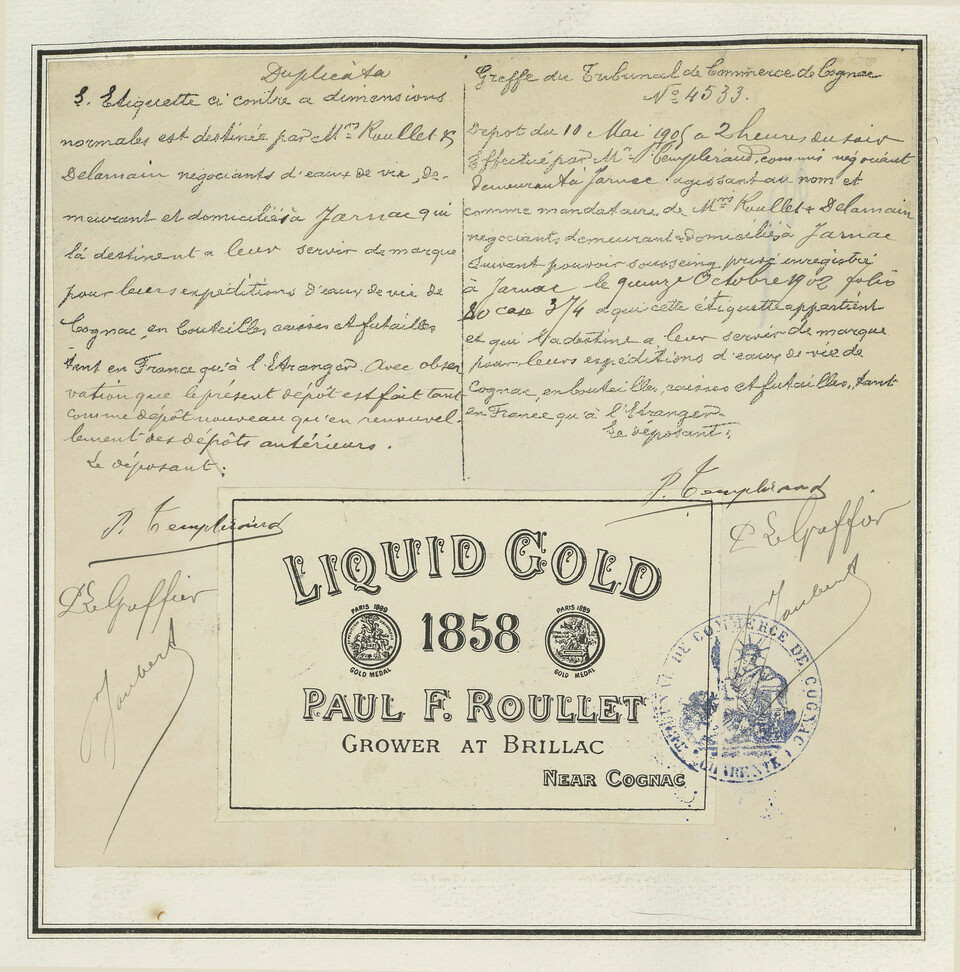 Duplicata
L'Etiquette ci contre a dimensions
normales est destinée par Mrs Roullet &
Delamain negociants d'eaux de vie, de-
meurant et domiciliés à Jarnac qui
la destinent a leur servir de marque
pour leurs expéditions d'eaux de vie de
Cognac, en bouteilles, caisses et futailles
tant en France qu'à l'Etranger. Avec obser
vation que le présent dépôt est fait tant
comme dépôt nouveau qu'en renouvel-
lement des dépôts antérieurs.
Le déposant:
P. Templeraud
Pr Le Greffier
Joubert
Greffe du Tribunal de Commerce de Cognac
No 4533.
Depot du 10 Mai 1905 a 2 heures du soir
Effectué par Mr Templeraud, commis négociant
demeurant à Jarnac agissant au nom et
comme mandataire de Mrs Roullet & Delamain
négociants demeurant & domiciliés à Jarnac
suivant pouvoir sous seing privé enregistré
à Jarnac le quinze Octobre 1902 folio
20 case 3/4 a qui cette étiquette appartient
et qui la destine a leur servir de marque
pour leurs expéditions d'eaux de vie de
Cognac, en bouteilles, caisses et futailles, tant
en France qu'à l'Etranger
Le déposant:
P. Templeraud
Pr Le Greffier
Joubert
LIQUID GOLD
PARIS 1889
GOLD MEDAL
1858
PARIS 1889
GOLD MEDAL
PAUL F. ROULLET
GROWER AT BRILLAC
NEAR COGNAC
DE COMMERCE DE COGNAC
(CHARENTE)